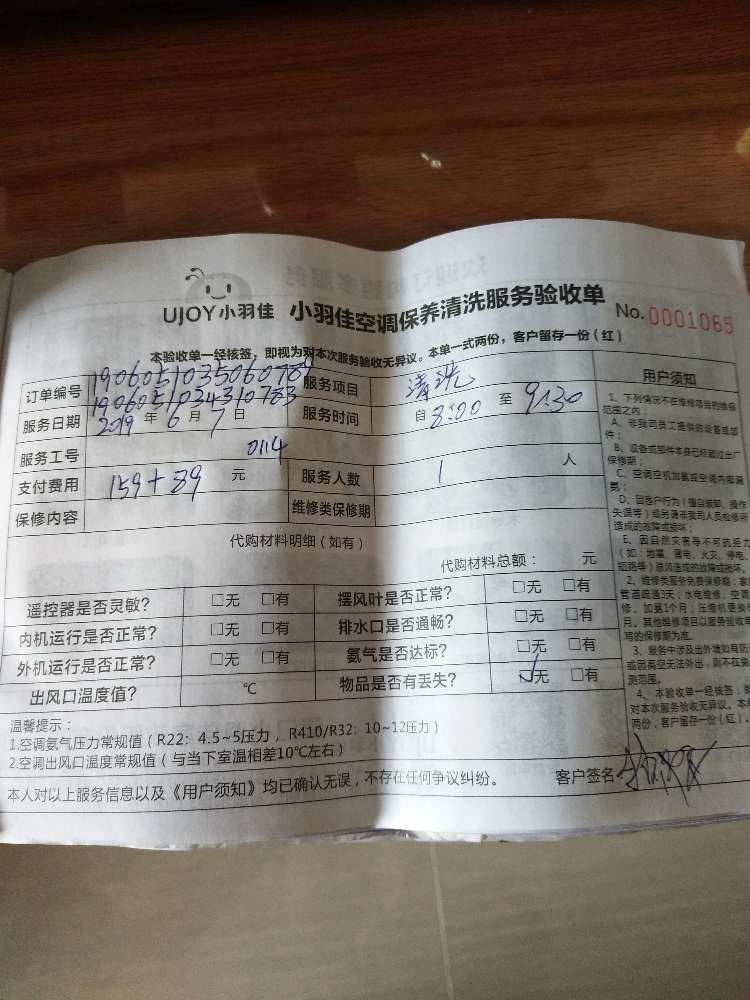 UJOY小羽佳 小羽佳空调保养清洗服务验收单 No.0001065
本验收单一经核签，即视为对本次服务验收无异议。本单一式两份，客户留存一份（红）
订单编号 190605103506078 服务项目 清洗
1906051024310783
服务日期 2019年6月7日 服务时间 自8:00至9:30
服务工号 0114
支付费用 159+89 元 服务人数 1 人
保修内容 维修类保修期
代购材料明细（如有）
代购材料总额： 元
遥控器是否灵敏？ □无 □有 摆风叶是否正常？ □无 □有
内机运行是否正常？ □无 □有 排水口是否通畅？ □无 □有
外机运行是否正常？ □无 □有 氨气是否达标？ □无 □有
出风口温度值？ ℃ 物品是否有丢失？ ☑无 □有
温馨提示：
1.空调氨气压力常规值（R22：4.5~5压力，R410/R32：10~12压力）
2.空调出风口温度常规值（与当下室温相差10℃左右）
本人对以上服务信息以及《用户须知》均已确认无误，不存在任何争议纠纷。 客户签名
用户须知
1、下列情况不在维修项目的维保
范围之内：
A、非我司员工提供的设备或部
件；
B、设备或部件本身已经超过出厂
保修期；
C、空调空机加氨或空调内家漏
氨；
D、因客户行为（擅自装卸、操作
失误等）或另请非我司人员检修所
造成的故障或损坏；
E、因自然灾害等不可抗拒力
（如：地震、雷电、火灾、停电、
短路等）原因造成的故障或损坏。
2、维修类服务免费保修期：家
管道疏通3天；水电维修、空调
修、加氨1个月；压缩机更换
月。其他维修项目以服务验收单
写的保修期为准。
3、服务中涉及出外墙如有防
或因高空无法外出，则不在
测范围。
4、本验收单一经核签，
对本次服务验收无异议。本单
两份，客户留存一份（红）。